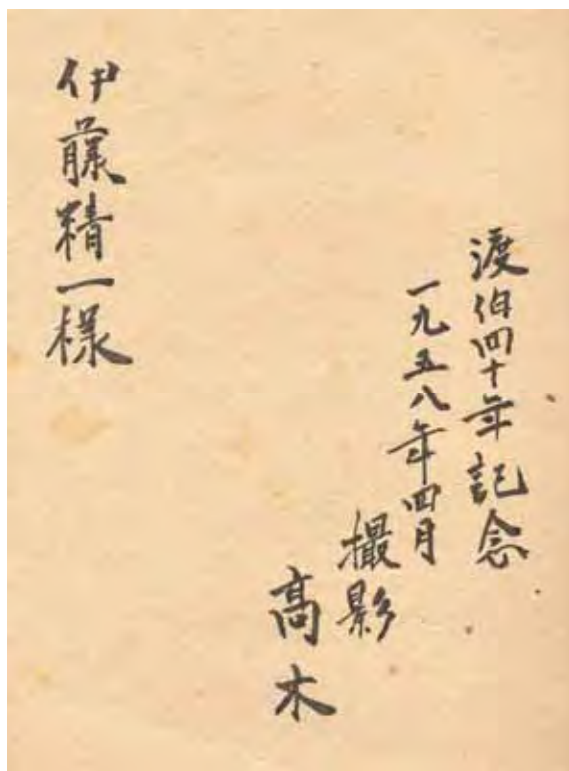 渡伯四十年記念
一九五八年四月
撮影
高木
伊藤精一様